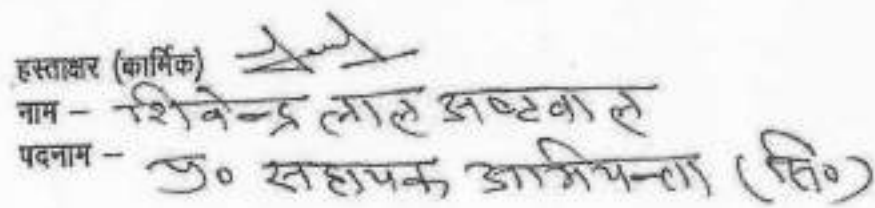 हस्ताक्षर (कार्मिक)
नाम - शिवेन्द्र लाल अष्टवाल
पदनाम - प्र० सहायक अभियन्ता (सि०)